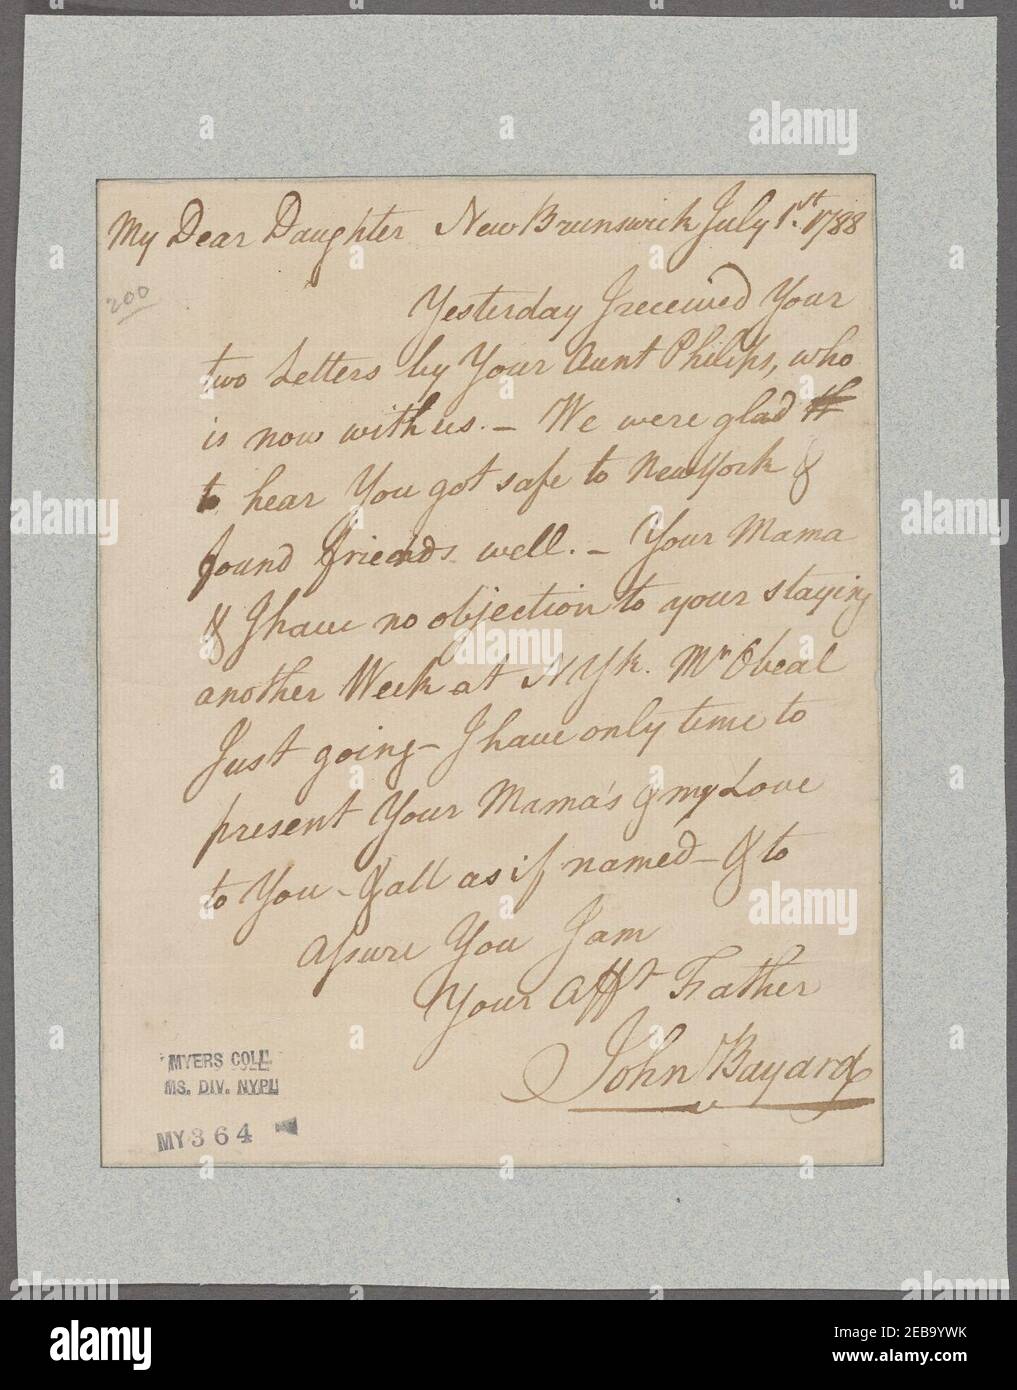 My Dear Daughter New Brunswick July 1st. 1788
200
Yesterday I received Your
two Letters by Your Aunt Philips, who
is now with us. – We were glad th
to hear You got safe to New York &
found friends well. – Your Mama
& I have no objection to your staying
another Week at N Yk. Mr Obeal
Just going – I have only time to
present Your Mama's & my Love
to You – & all as if named – & to
assure You I am
Your Afft Father
John Bayard
MYERS COLL.
MS. DIV. NYPL
MY 364
alamy
Image ID: 2EB9YWK
www.alamy.com